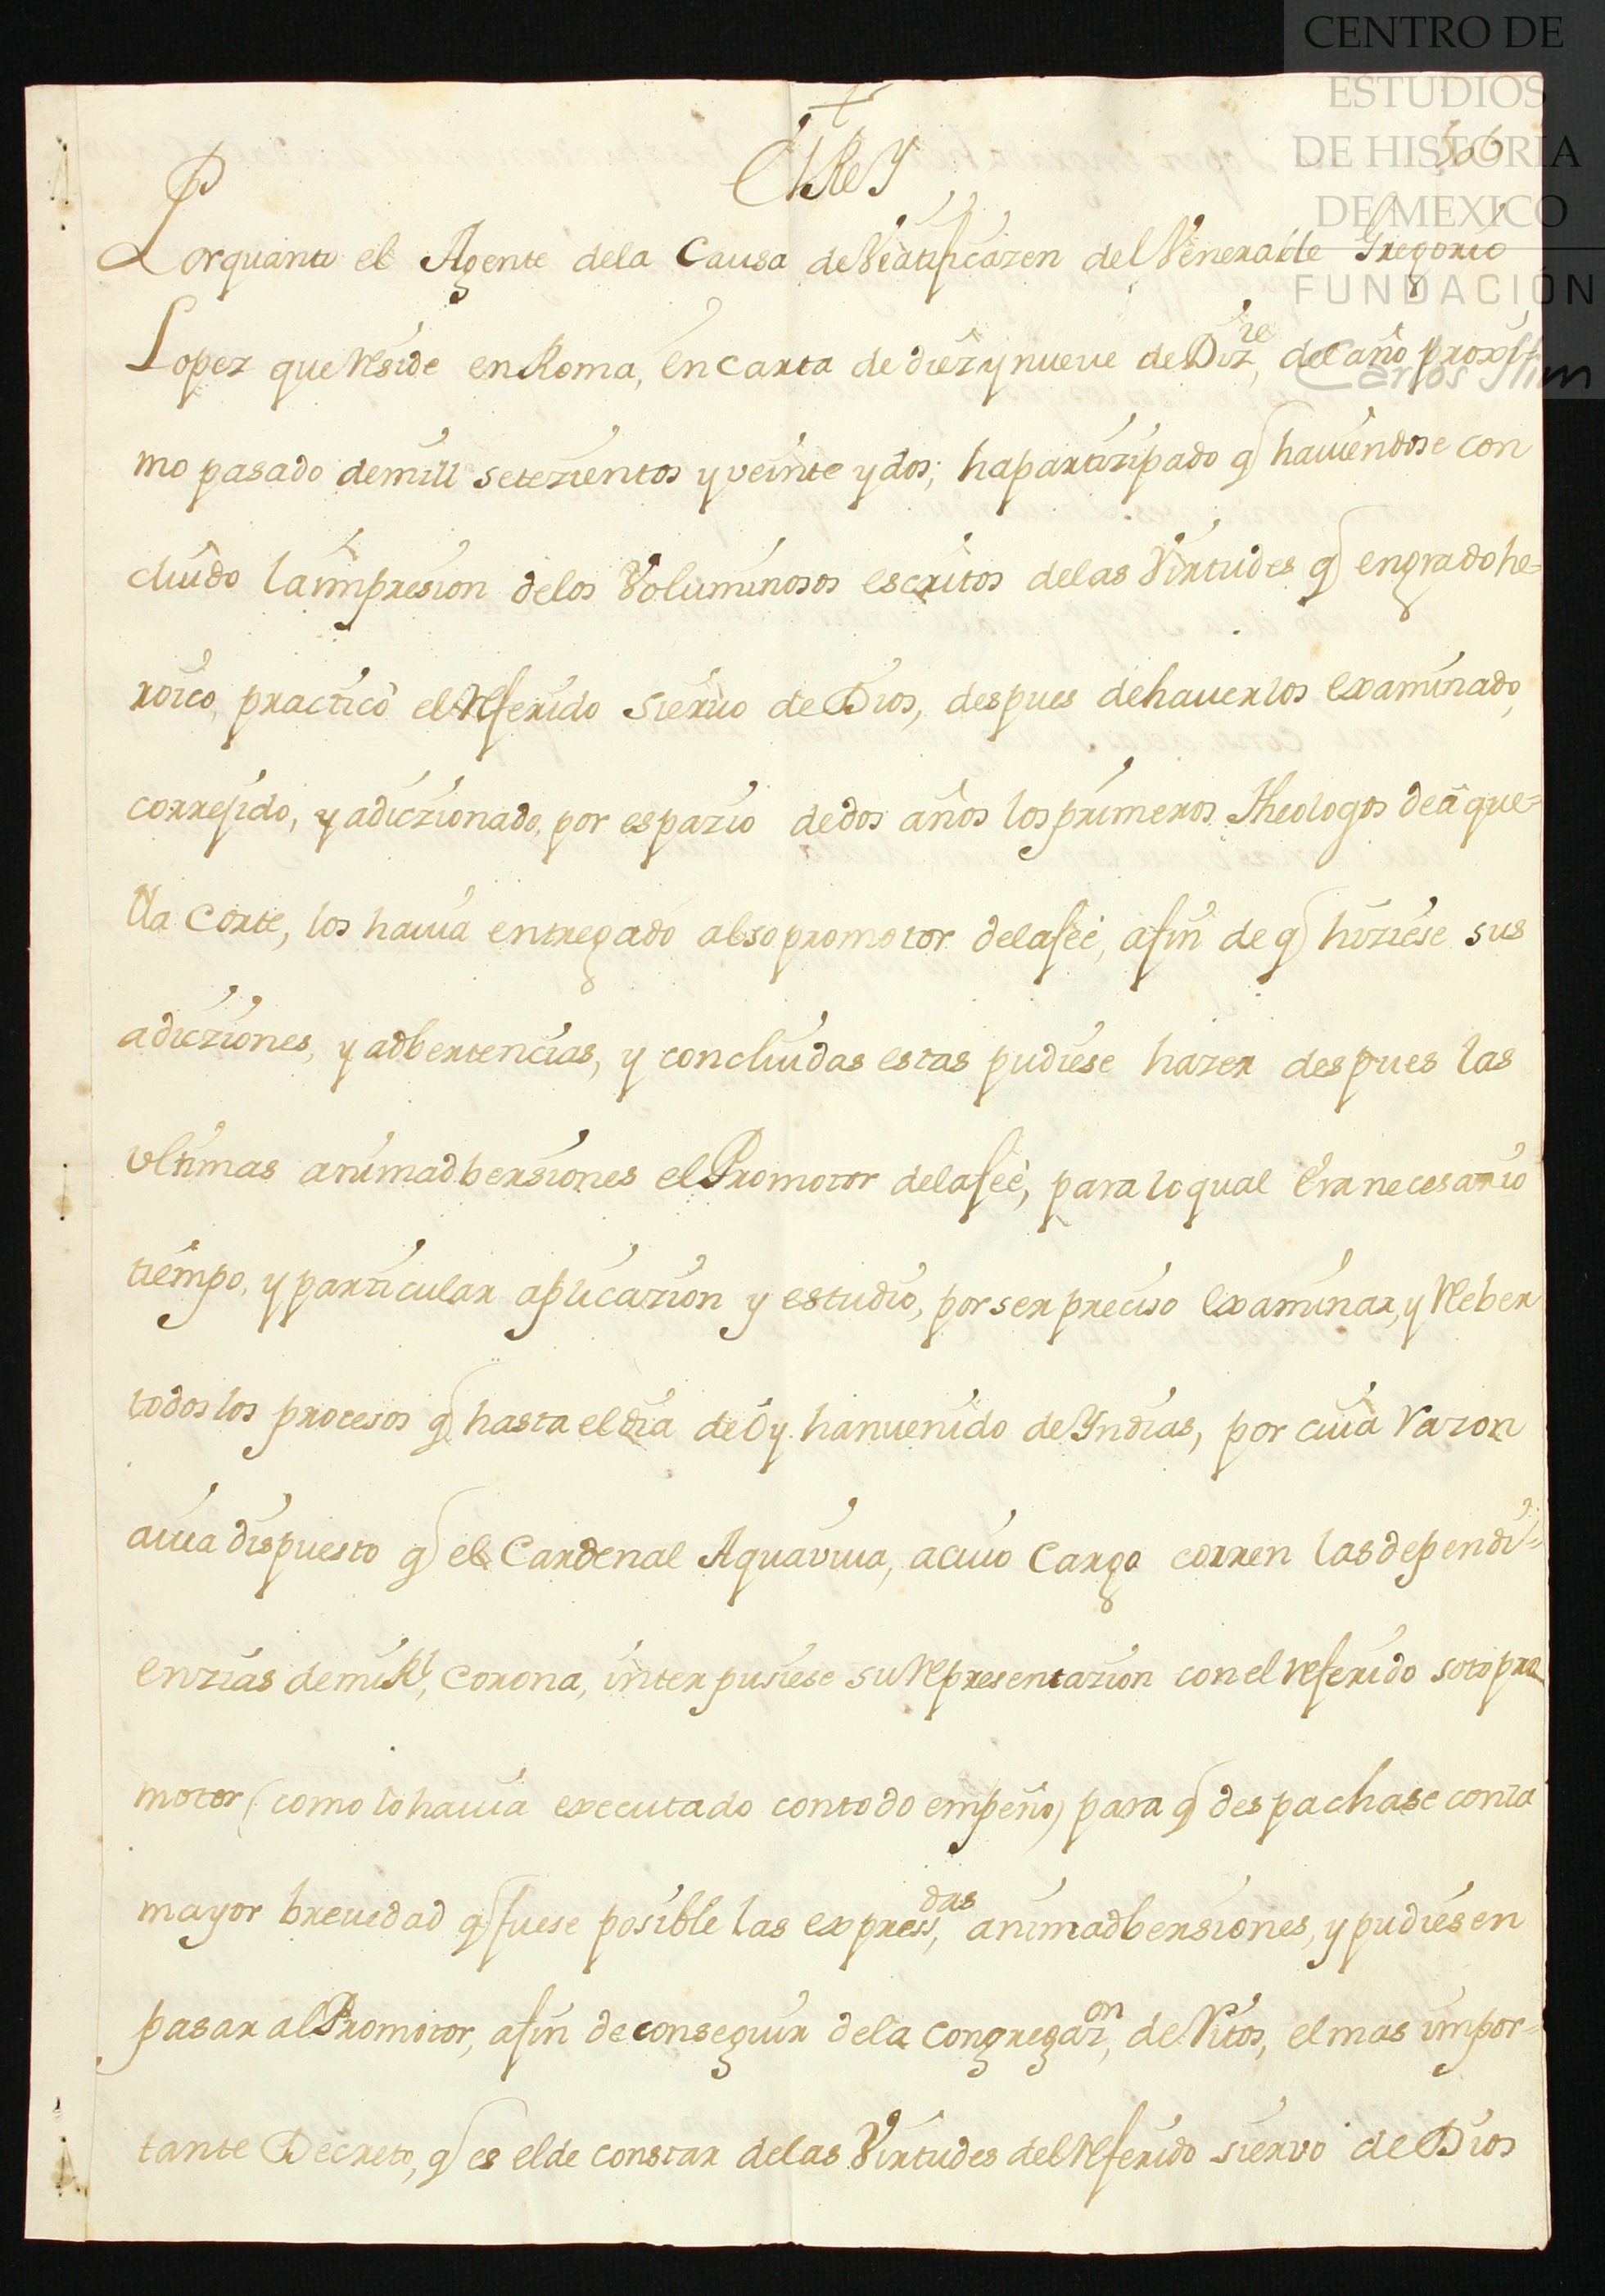 CENTRO DE
ESTUDIOS
DE HISTORIA
DE MEXICO
FUNDACIÓN
Carlos Slim
El Rey
Porquanto el Agente dela Causa de Veatificazen del Venerable Gregorio
Lopez que reside en Roma, en carta de diez y nueve de Dizre, del año proxi-
mo pasado de mill setezientos y veinte y dos; ha partizipado q haviendose con
cluido la impresion delos Voluminosos escritos delas Virtudes q en grado he=
roico, practicò el referido siervo de Dios, despues de haverlos examinado,
correjido, y adiczionado, por espazio de dos años los primeros Theologos de aque=
lla Corte, los havia entregado al sopromotor dela feè, a fin de q hiziese sus
adicziones, y adbertencias, y concluidas estas pudiese hazer despues las
ultimas animadbersiones el Promotor dela feè, para lo qual era necesario
tiempo, y particular aplicazion y estudio, por ser preciso examinar, y reber
todos los procesos q hasta el dia de oy han venido de Yndias, por cuia razon
avia dispuesto q el Cardenal Aquaviva, a cuio cargo corren las dependi=
enzias de mi Rl, Corona, interpusiese su representazion con el referido sotopro
motor (como lo havia executado con todo empeño) para q despachase con la
mayor brevedad q fuese posible las expressdas, animadbersiones, y pudiesen
pasar al Promotor, a fin de conseguir dela Congregazon, de Ritos, el mas impor=
tante Decreto, q es el de constar delas Virtudes del referido siervo de Dios